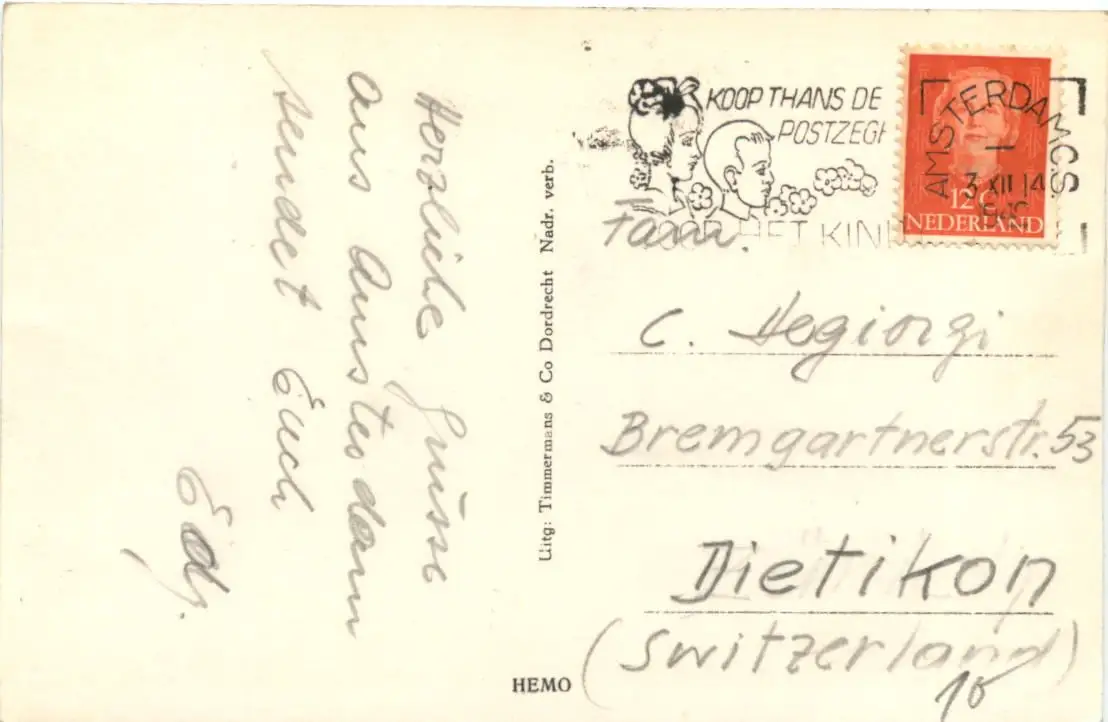 Herzliche Grüsse
aus Amsterdam
sendet Euch
Edy.
Uitg: Timmermans & Co Dordrecht Nadr. verb.
HEMO
KOOP THANS DE
POSTZEG
VOOR HET KIN
AMSTERDAM C.S.
3 XII 14
12 C
NEDERLAND
Fam.
C. Degiorgi
Bremgartnerstr. 53
Dietikon
(Switzerland)